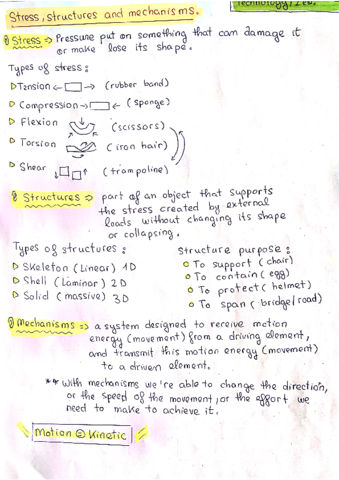 Stress, structures and mechanisms.
Technology, 2 EV.
Stress => Pressure put on something that can damage it
or make lose its shape.
Types of stress:
Tension ← → (rubber band)
Compression → ← (sponge)
Flexion (scissors)
Torsion (iron hair)
Shear (trampoline)
Structures => part of an object that supports
the stress created by external
loads without changing its shape
or collapsing.
Types of structures:
Skeleton (Linear) 1D
Shell (Laminar) 2D
Solid (massive) 3D
Structure purpose:
To support (chair)
To contain (egg)
To protect (helmet)
To span (bridge/road)
Mechanisms => a system designed to receive motion
energy (movement) from a driving element,
and transmit this motion energy (movement)
to a driven element.
** With mechanisms we're able to change the direction,
or the speed of the movement, or the effort we
need to make to achieve it.
Motion = Kinetic